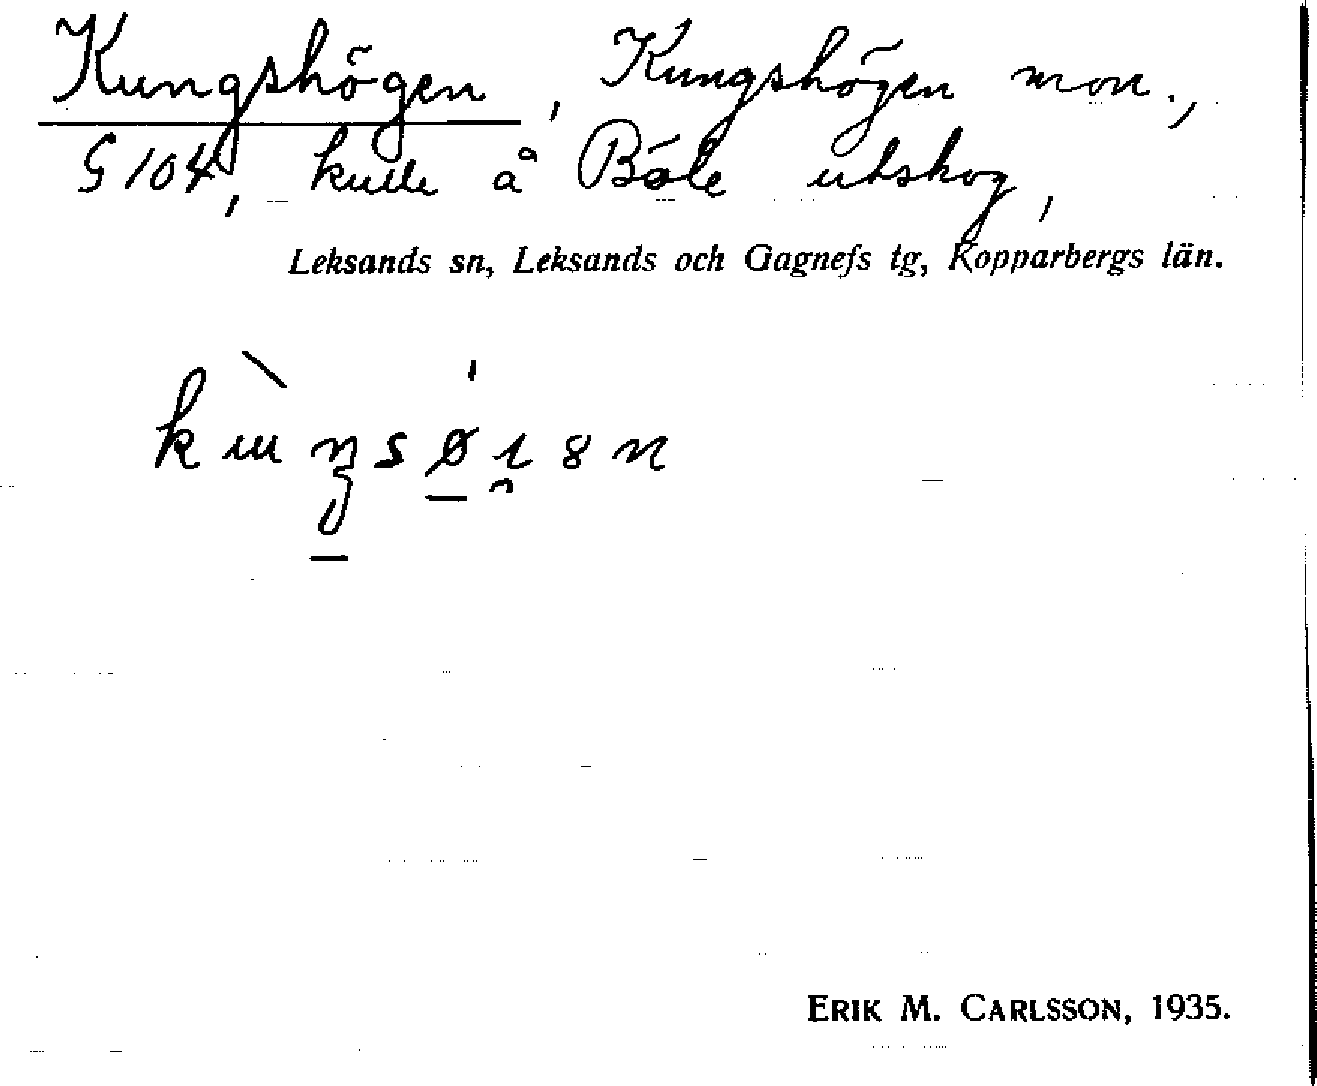 Kungshögen, Kungshögen mon.,
G 104, kulle å Böle utskog,
Leksands sn, Leksands och Gagnefs tg, Kopparbergs län.
ERIK M. CARLSSON, 1935.